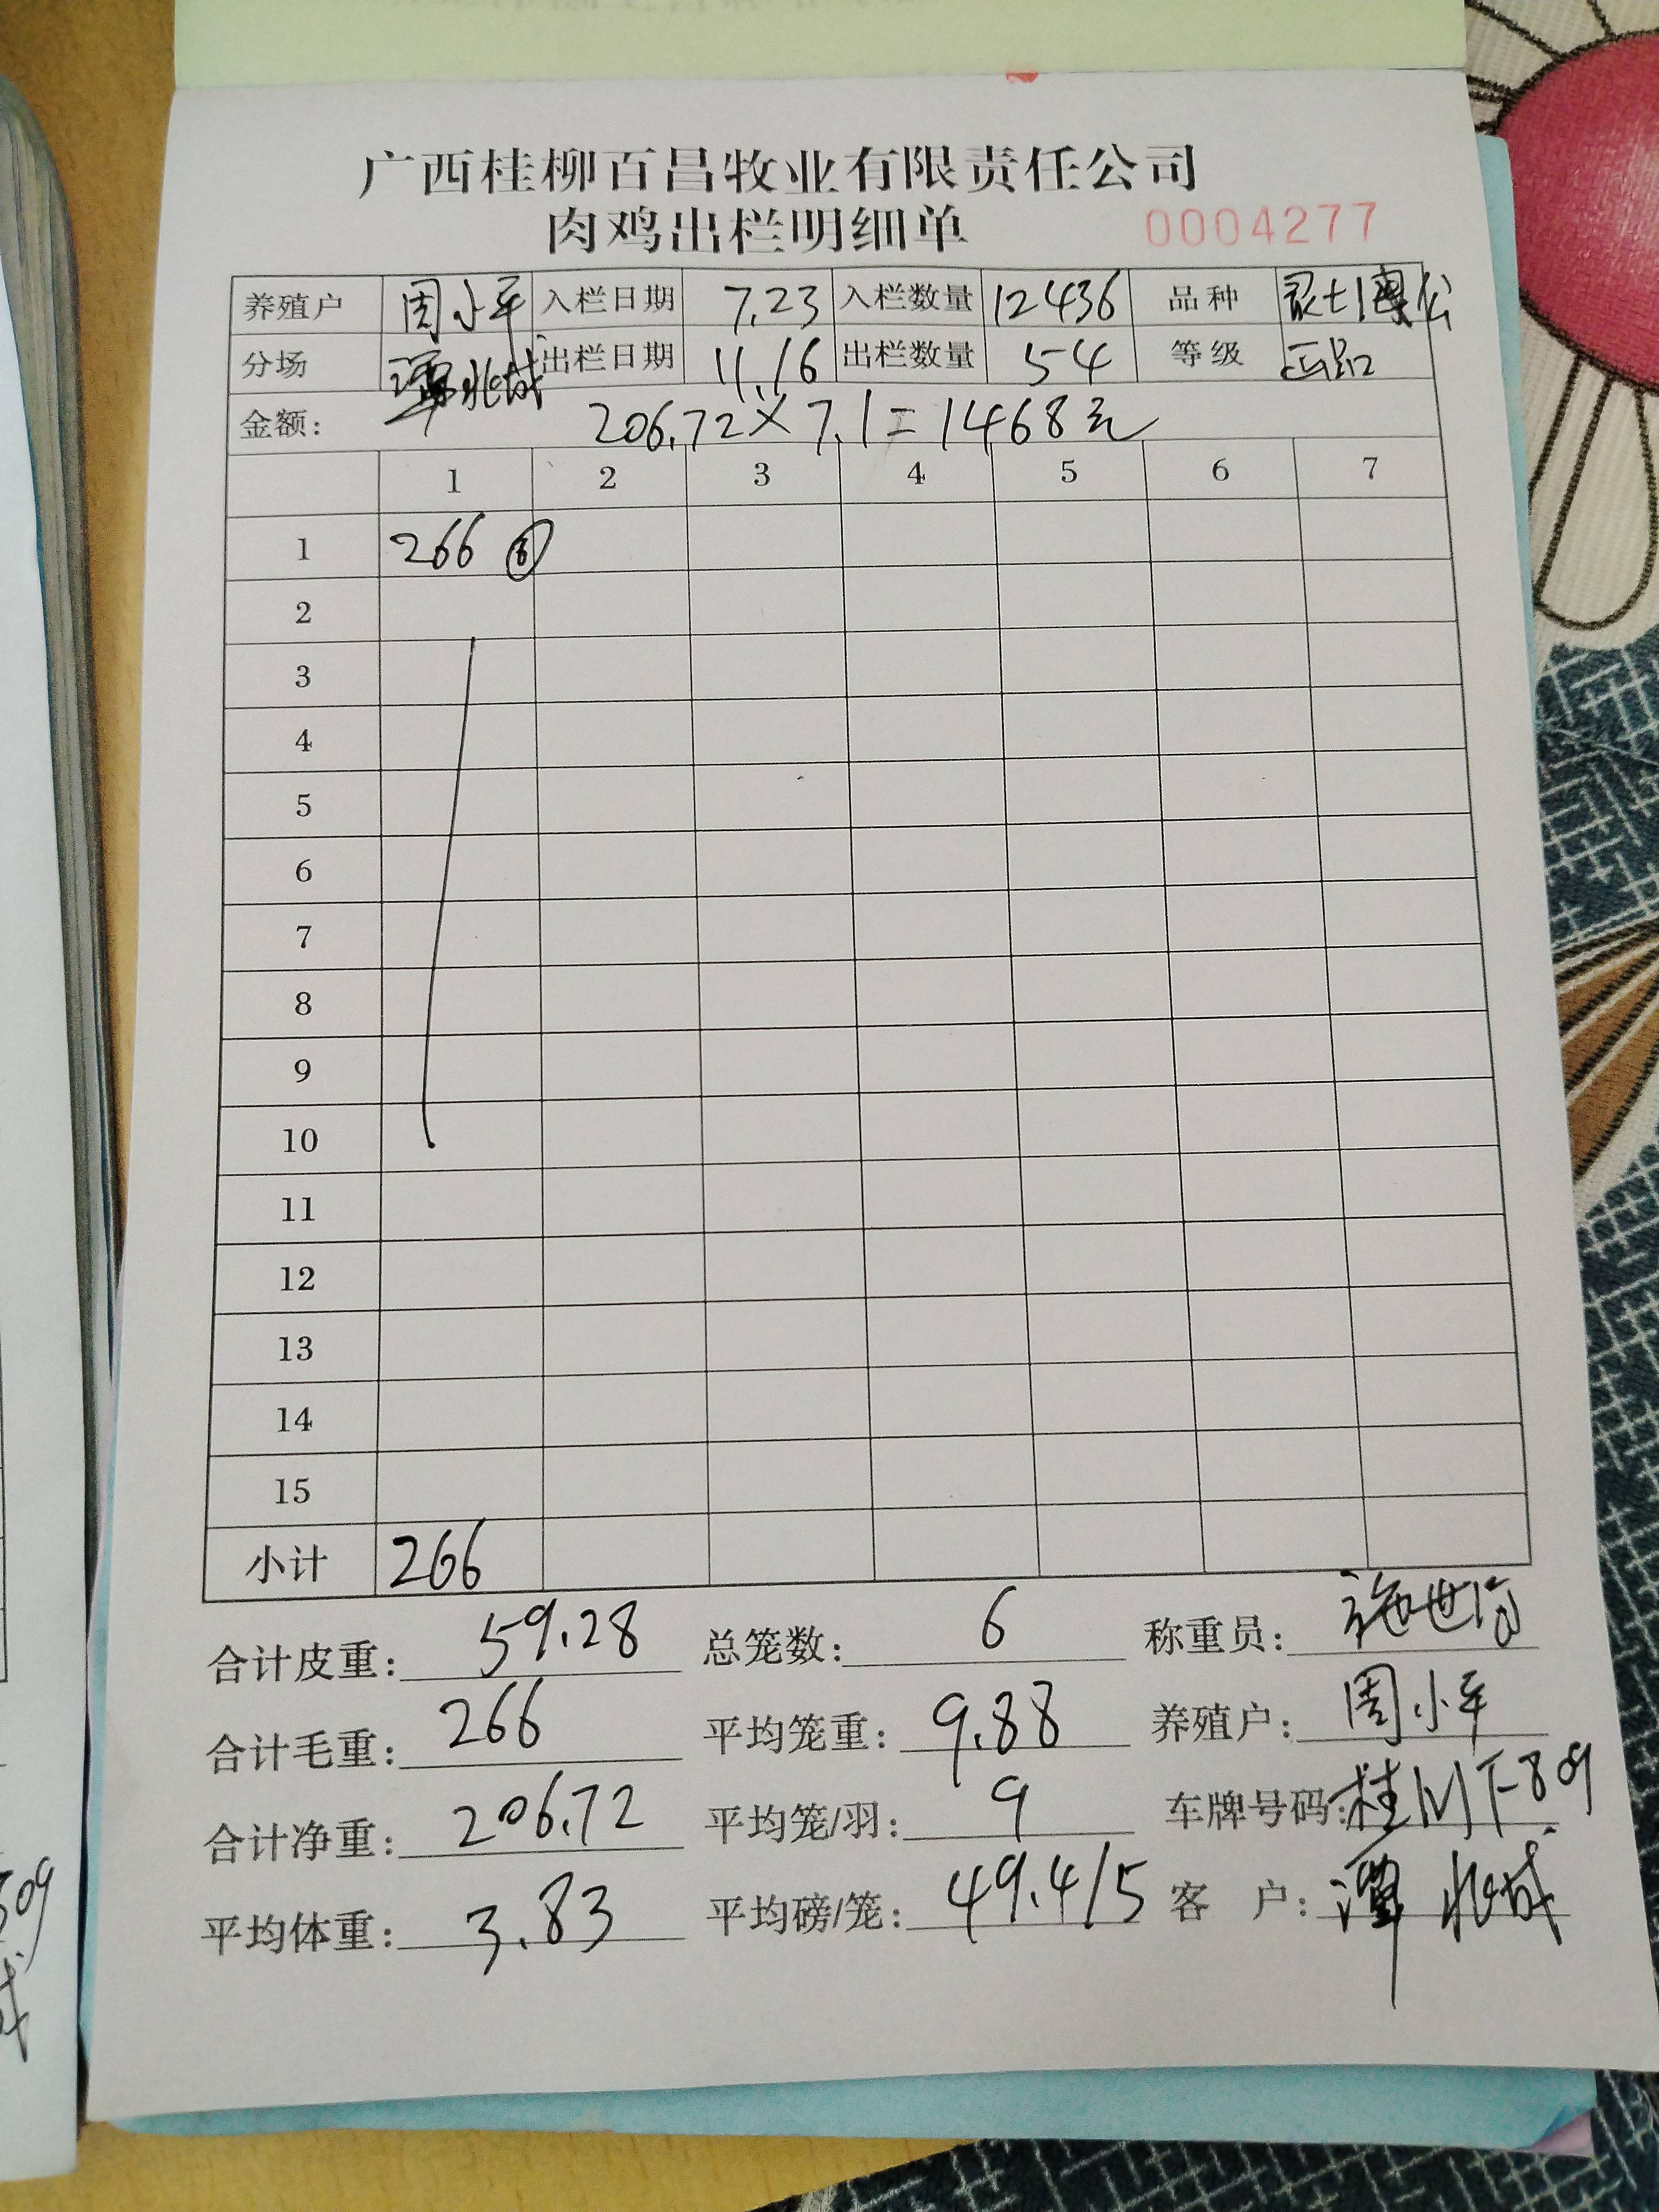 广西桂柳百昌牧业有限责任公司
肉鸡出栏明细单 0004277
养殖户 周小平 入栏日期 7.23 入栏数量 12436 品种
分场 出栏日期 11.16 出栏数量 54 等级 正品
金额: 206.72×7.1=1468元
1 2 3 4 5 6 7
1 266 ⑥
2
3
4
5
6
7
8
9
10
11
12
13
14
15
小计 266
合计皮重: 59.28 总笼数: 6 称重员: 施世
合计毛重: 266 平均笼重: 9.88 养殖户: 周小平
合计净重: 206.72 平均笼/羽: 9 车牌号码: 桂
平均体重: 3.83 平均磅/笼: 49.4/5 客户: 谭
509